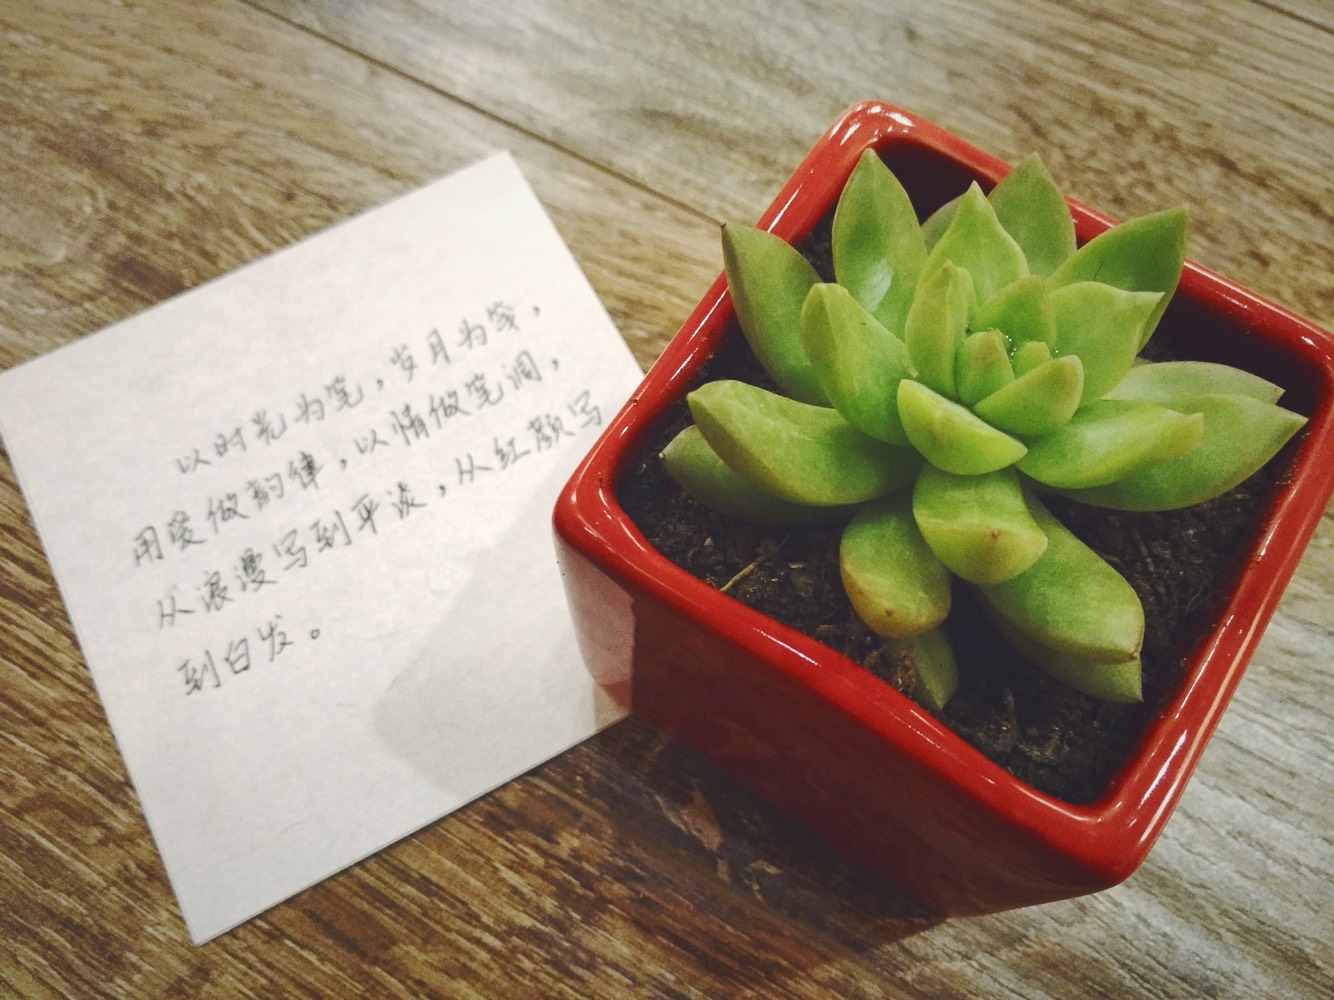 以时光为笔，岁月为笺，
用爱做韵律，以情做笔调，
从浪漫写到平淡，从红颜写
到白发。